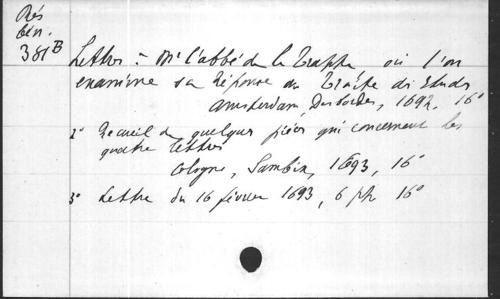 Rés
bén.
381 B
Lettre à Mr l'abbé de la Trappe où l'on
examine sa Réponse au Traité des Etudes
Amsterdam, Desbordes, 1692, 16°
2° Recueil de quelques pièces qui concernent les
quatre lettres
Cologne, Sambix, 1693, 16°
3° Lettre du 16 février 1693, 6 pp 16°